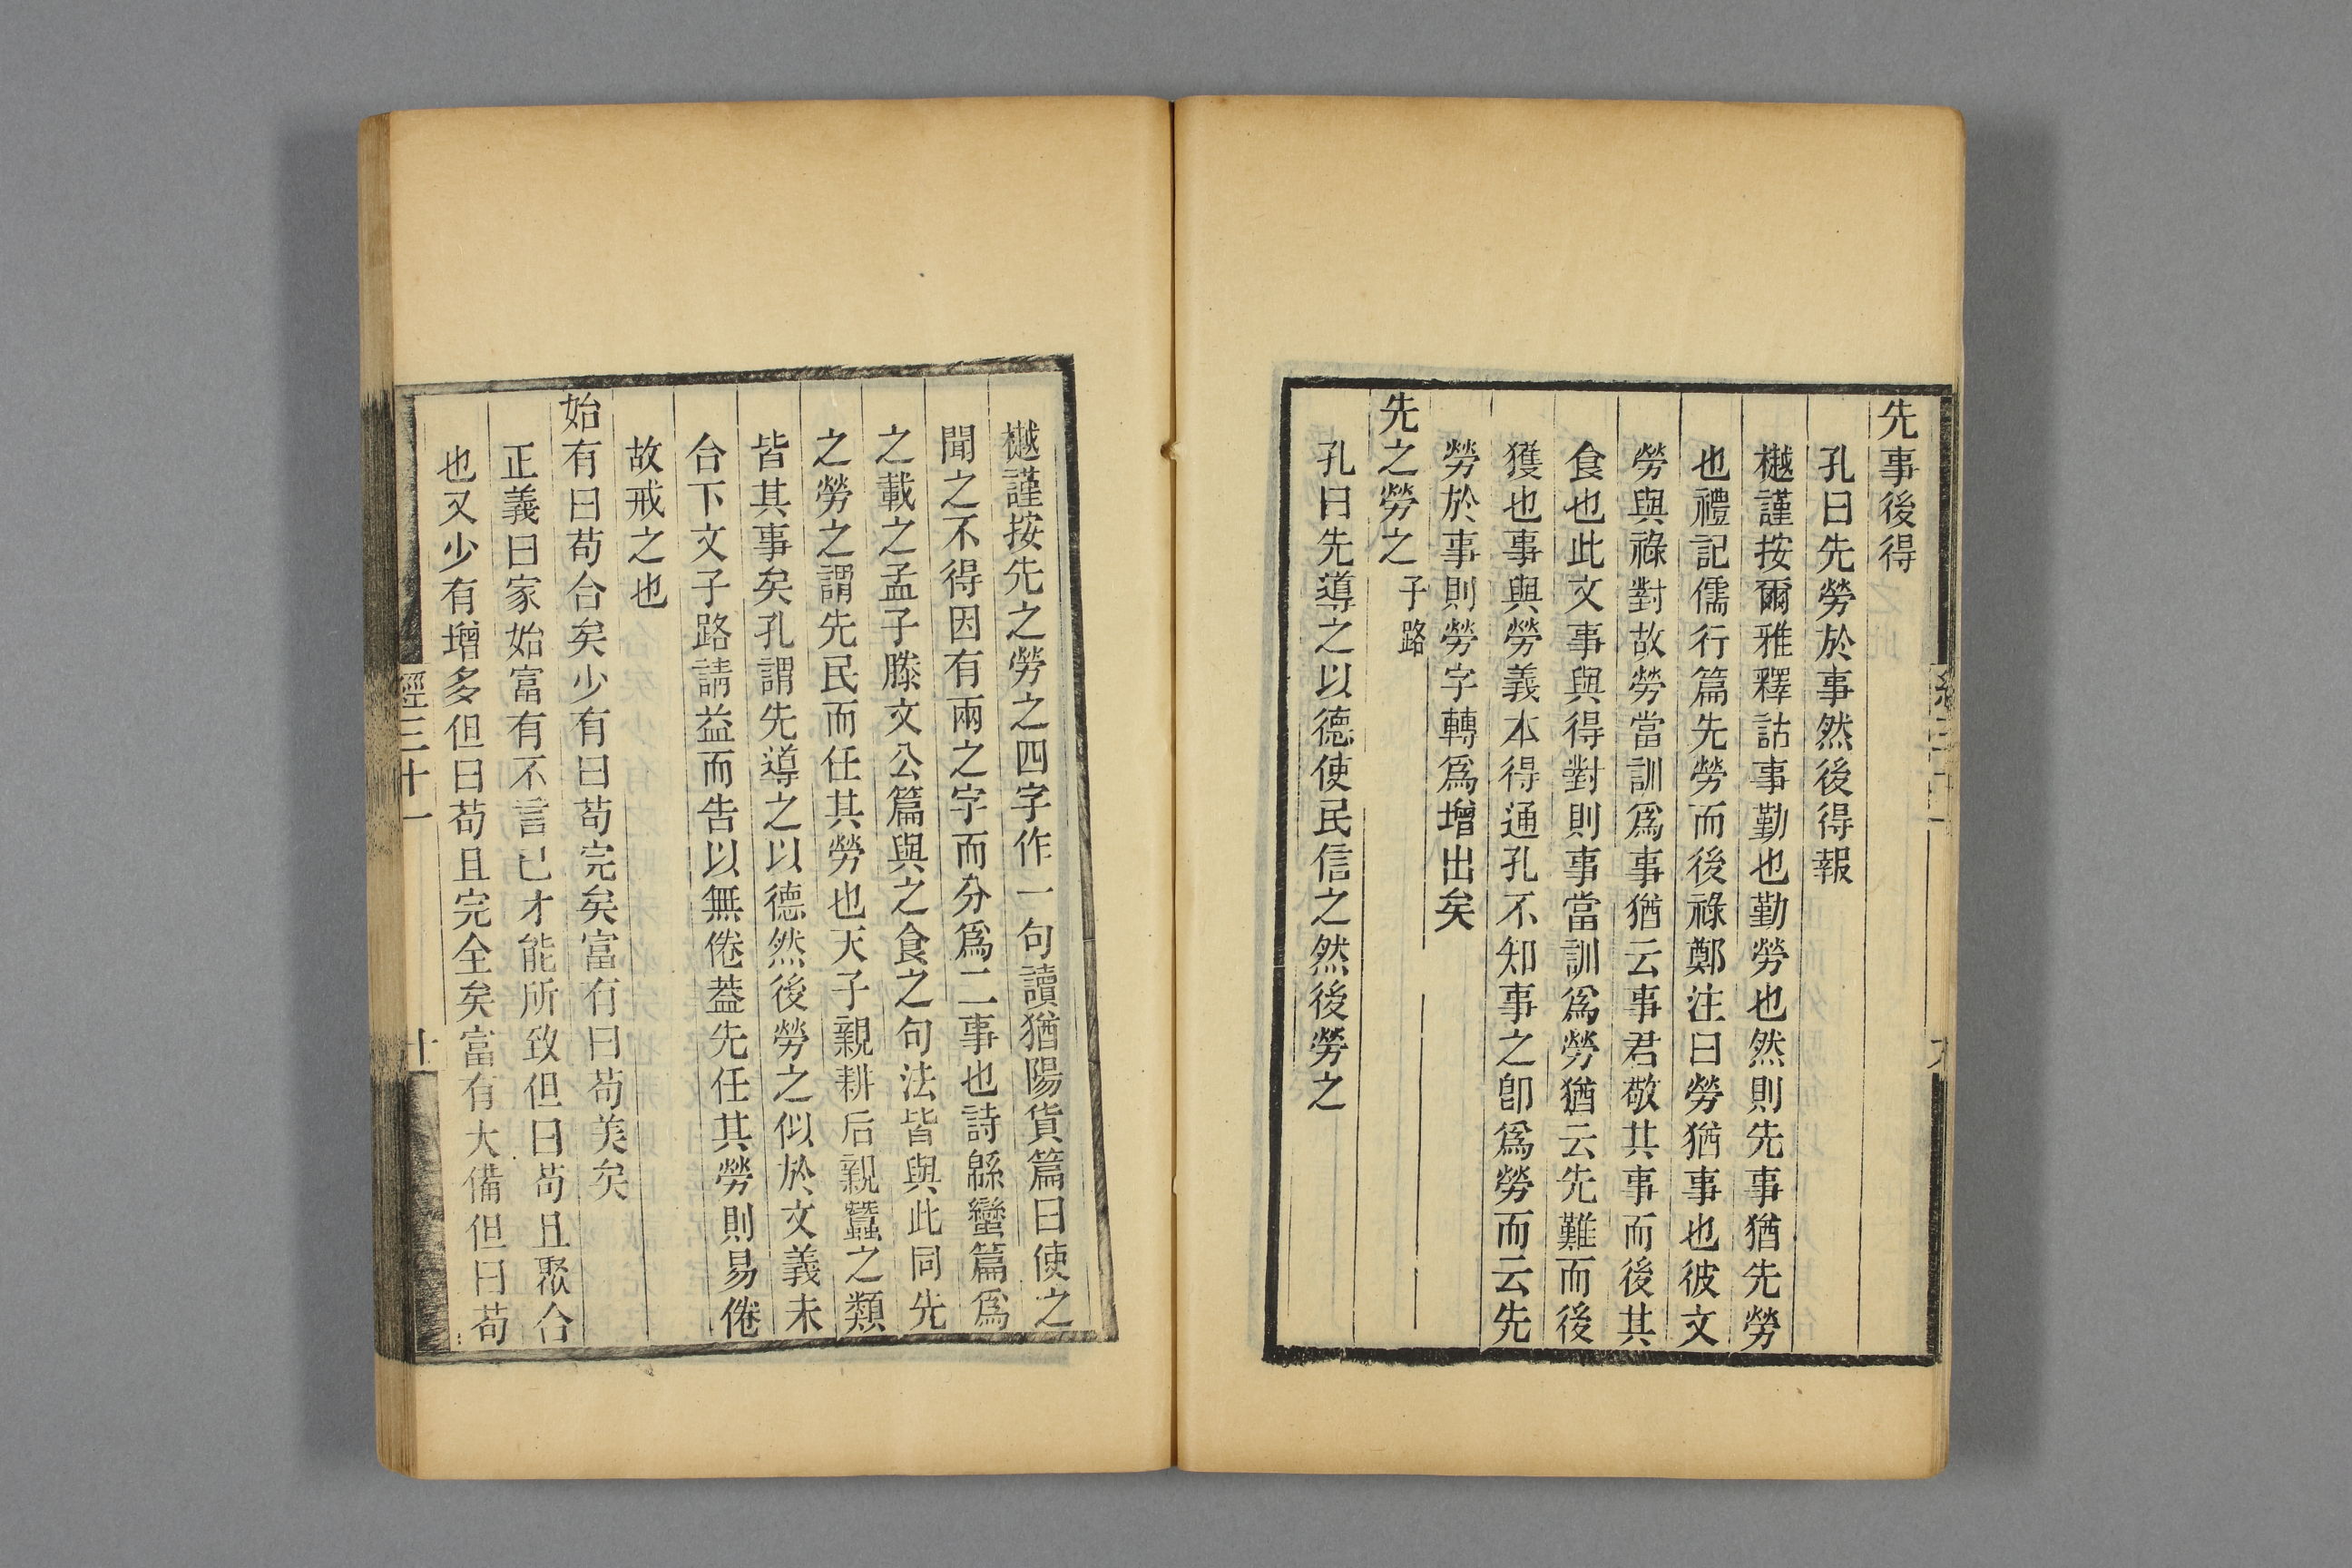 先事後得
孔曰先勞於事然後得報
樾謹按爾雅釋詁事勤也勤勞也然則先事猶先勞
也禮記儒行篇先勞而後祿鄭注曰勞猶事也彼文
勞與祿對故勞當訓爲事猶云事君敬其事而後其
食也此文事與得對則事當訓爲勞猶云先難而後
獲也事與勞義本得通孔不知事之卽爲勞而云先
勞於事則勞字轉爲增出矣
先之勞之 子路
孔曰先導之以德使民信之然後勞之
樾謹按先之勞之四字作一句讀猶陽貨篇曰使之
聞之不得因有兩之字而分爲二事也詩緜蠻篇爲
之載之孟子滕文公篇與之食之句法皆與此同先
之勞之謂先民而任其勞也天子親耕后親蠶之類
皆其事矣孔謂先導之以德然後勞之似於文義未
合下文子路請益而告以無倦蓋先任其勞則易倦
故戒之也
始有曰苟合矣少有曰苟完矣富有曰苟美矣
正義曰家始富有不言己才能所致但曰苟且聚合
也又少有增多但曰苟且完全矣富有大備但曰苟
經三十一